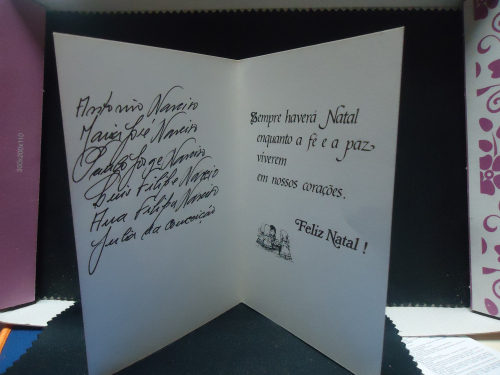 Antonio Narciso
Maria José Narciso
Paulo Jorge Narciso
Luis Filipe Narciso
Ana Filipa Narciso
Julia da Conceição
Sempre haverá Natal
enquanto a fé e a paz
viverem
em nossos corações.
Feliz Natal !